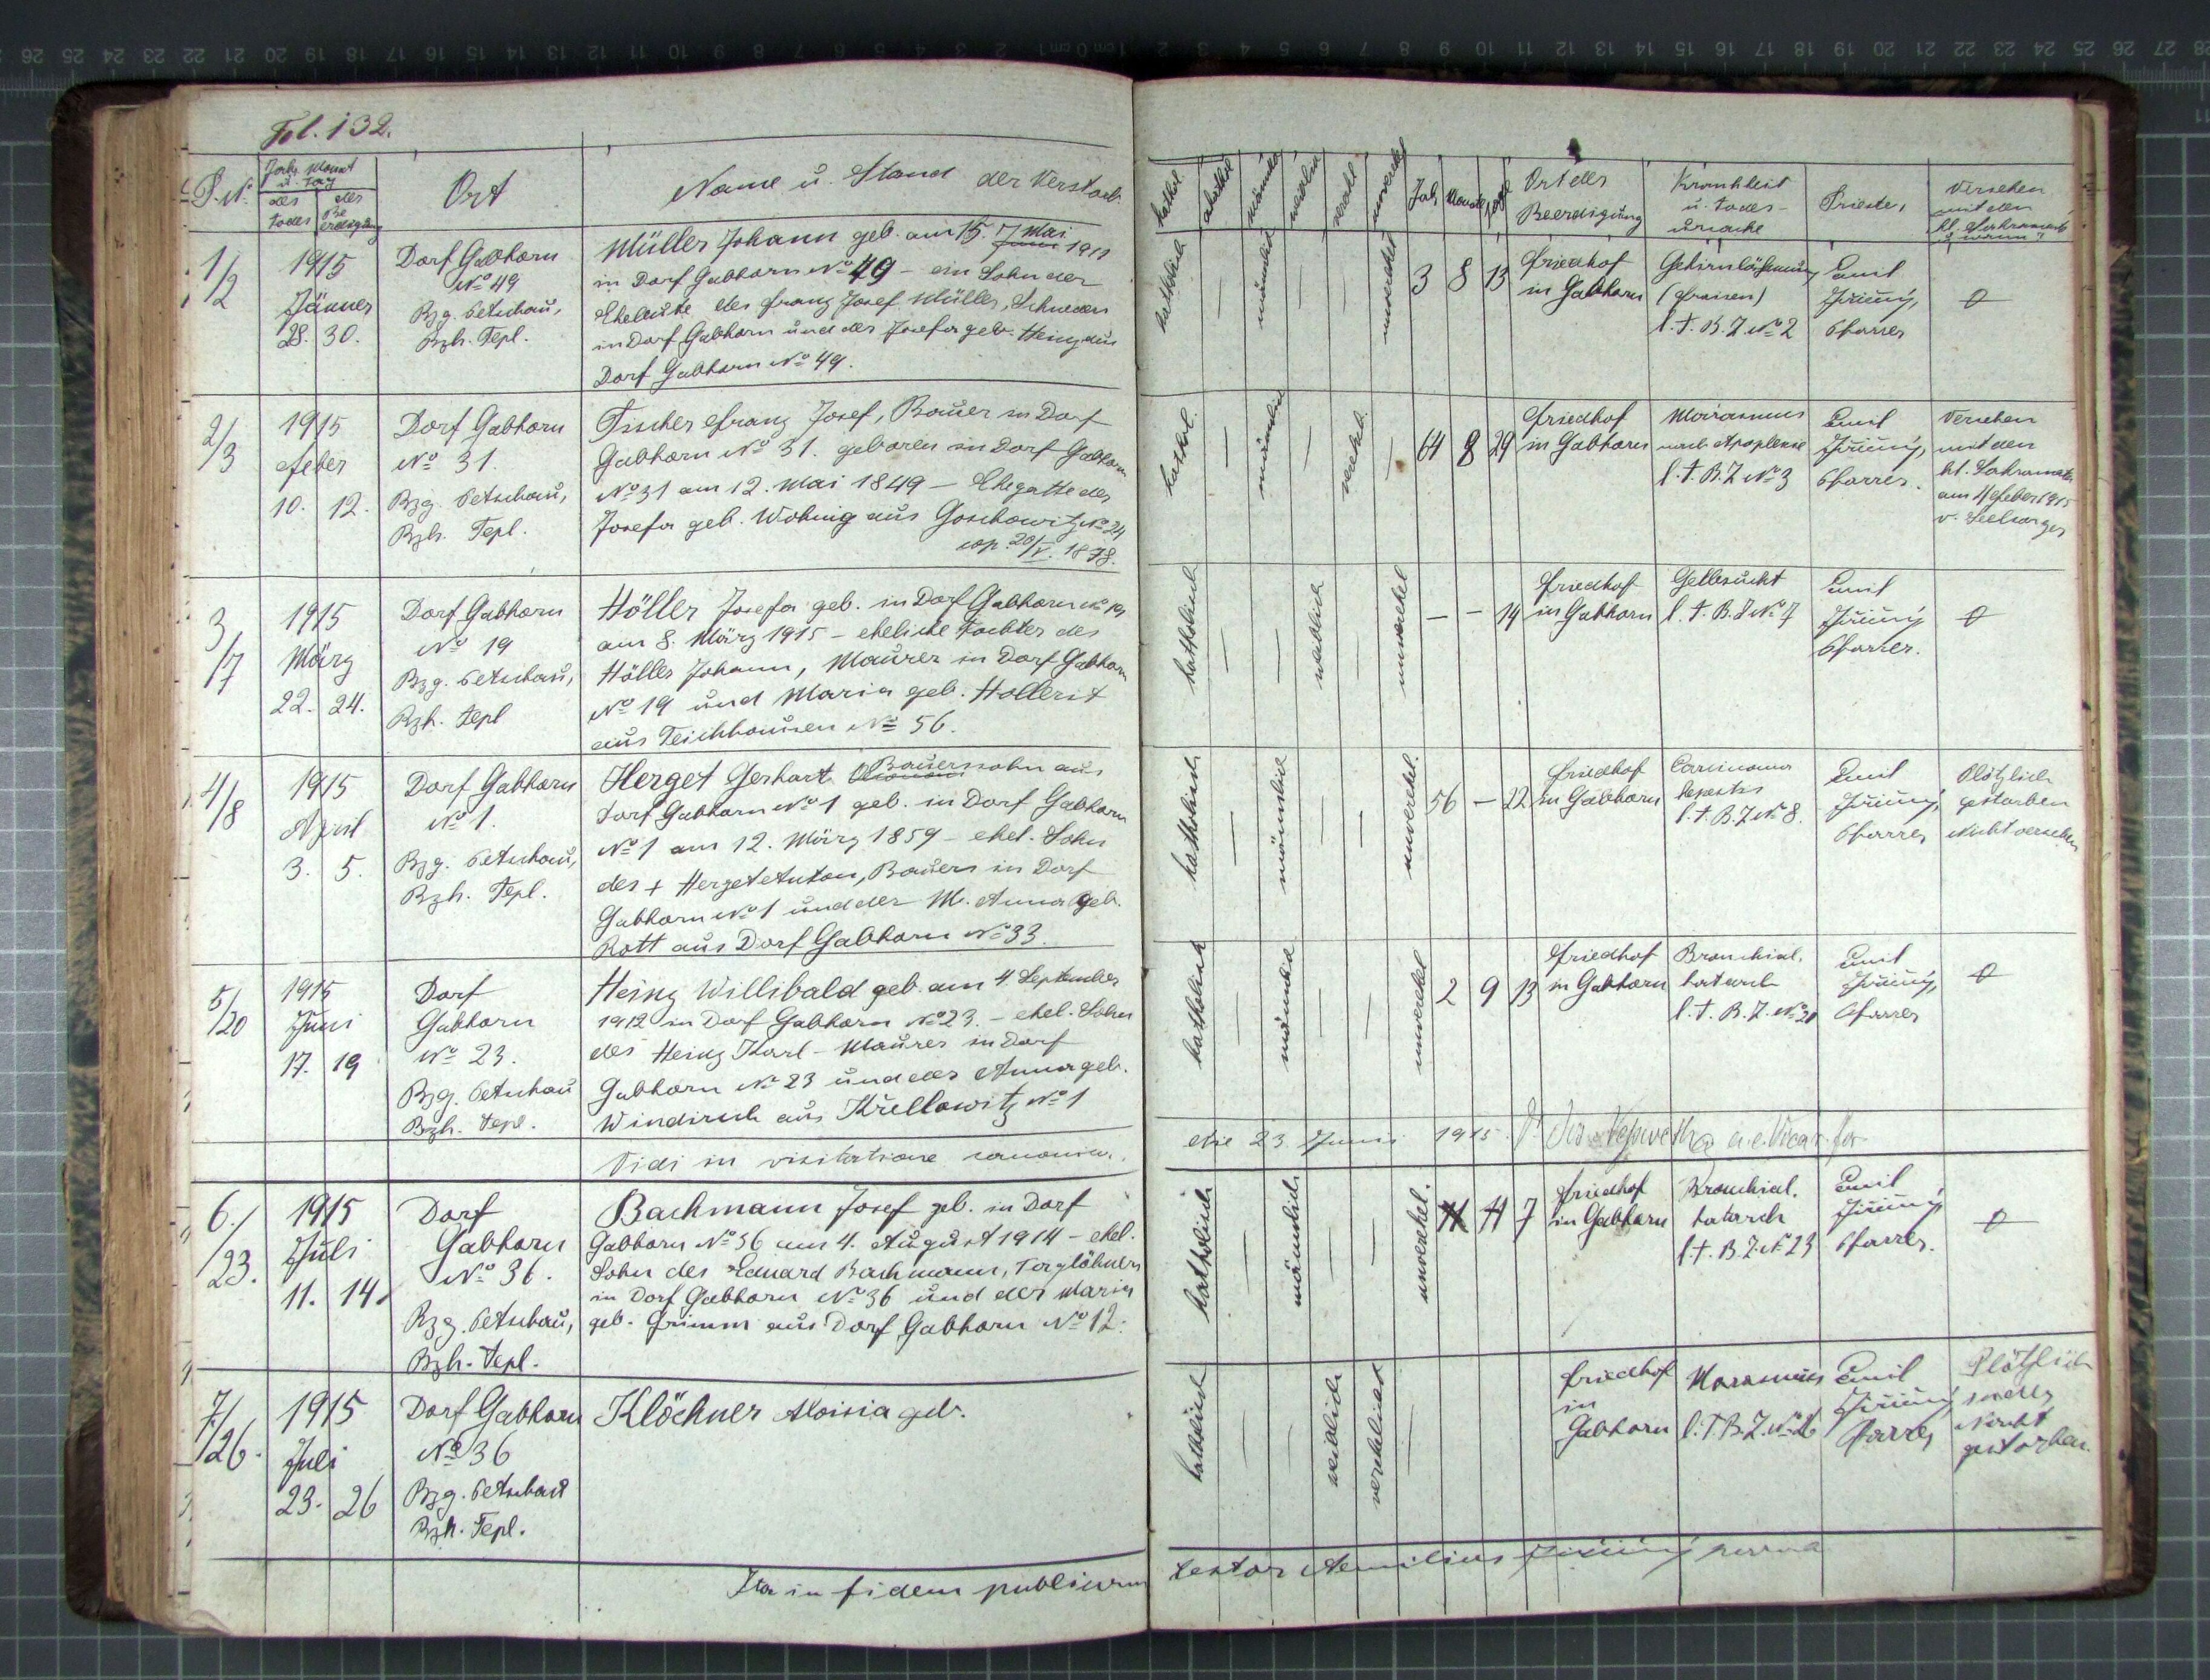 Fol. 132.
P. N.
Jahr, Monat u. Tag
des Todes
der Beerdigung
Ort
Name u. Stand der Verstorb.
kathol.
akathol.
männlich
weiblich
verehel.
unverehel.
Jah.
Monate
Tage
Ort der Beerdigung
Krankheit u. Todes-ursache
Priester
Versehen mit den hl. Sakramenten u. wann?
1/2
1915
Jänner
28. 30.
Dorf Gabhorn
No 49
Bzg. Petschau,
Bzh. Tepl.
Müller Johann geb. am 15. Juni Mai 1911
in Dorf Gabhorn No 49 - ein Sohn der
Eheleute des Franz Josef Müller, Schneiders
in Dorf Gabhorn und der Josefa geb. Heinz aus
Dorf Gabhorn No 49.
katholisch
—
männlich
—
—
unverehel.
3 8 13
Friedhof
in Gabhorn
Gehirnlähmung
(Fraisen)
l. t. B. Z. No 2
Emil
Jiřičný,
Pfarrer
0
2/3
1915
Feber
10. 12.
Dorf Gabhorn
No 31.
Bzg. Petschau,
Bzh. Tepl.
Fischer Franz Josef, Bauer in Dorf
Gabhorn No 31. geboren in Dorf Gabhorn
No 31 am 12. Mai 1849 - Ehegatte der
Josefa geb. Wohnig aus Goschowitz No 24
cop. 20/V. 1878.
kathol.
—
männlich
—
verehel.
—
64 8 29
Friedhof
in Gabhorn
Marasmus
nach Apoplexie
l. t. B. Z No 3
Emil
Jiřičný,
Pfarrer.
Versehen
mit den
hl. Sakramenten
am Feber 1915
v. Seelsorger
3/7
1915
März
22. 24.
Dorf Gabhorn
No 19
Bzg. Petschau,
Bzh. Tepl
Höller Josefa geb. in Dorf Gabhorn No 19
am 8. März 1915 - eheliche Tochter des
Höller Johann, Maurer in Dorf Gabhorn
No 19 und Maria geb. Hollerit
aus Teichhäusen No 56.
katholisch
—
—
weiblich
—
unverehel
— — 14
Friedhof
in Gabhorn
Gelbsucht
l. t. B. Z No 7
Emil
Jiřičný
Pfarrer.
0
4/8
1915
April
3. 5.
Dorf Gabhorn
No 1.
Bzg. Petschau,
Bzh. Tepl.
Herget Gerhart Bauerssohn aus
Dorf Gabhorn No 1 geb. in Dorf Gabhorn
No 1 am 12. März 1859 - ehel. Sohn
des + Herget Anton, Bauers in Dorf
Gabhorn No 1 und der M. Anna geb.
Rott aus Dorf Gabhorn No 33.
katholisch
—
männlich
—
—
unverehel.
56 — 22
Friedhof
in Gabhorn
Carcinoma
hepatis
l. t. B. Z No 8.
Emil
Jiřičný,
Pfarrer
Plötzlich
gestorben
Nicht versehen
5/20
1915
Juni
17. 19
Dorf
Gabhorn
No 23.
Bzg. Petschau
Bzh. Tepl.
Heinz Willibald geb. am 4. September
1912 in Dorf Gabhorn No 23. - ehel. Sohn
des Heinz Karl - Maurer in Dorf
Gabhorn No 23 und der Anna geb.
Windirsch aus Křellowitz No 1
katholisch
—
männlich
—
—
unverehel
2 9 13
Friedhof
in Gabhorn
Bronchial.
katarrh
l. t. B. Z. No 20
Emil
Jiřičný,
Pfarrer
0
Vidi in visitatione canonica.
die 23 Junii 1915.
6./23.
1915
Juli
11. 14.
Dorf
Gabhorn
No 36.
Bzg. Petschau,
Bzh. Tepl.
Bachmann Josef geb. in Dorf
Gabhorn No 36 am 4. August 1914 - ehel.
Sohn des Eduard Bachmann, Taglöhners
in Dorf Gabhorn No 36 und der Maria
geb. Grimm aus Dorf Gabhorn No 12.
katholisch
—
männlich
—
—
unverehel.
11 7
Friedhof
in Gabhorn
Bronchial.
katarrh
l. t. B. Z. No 23
Emil
Jiřičný
Pfarrer.
0
7/26.
1915
Juli
23. 26
Dorf Gabhorn
No 36
Bzg. Petschau
Bzh. Tepl.
Klöckner Aloisia geb.
katholisch
—
—
weiblich
verehelicht
—
Friedhof
in
Gabhorn
Marasmus
l. t. B. Z. No 26
Emil
Jiřičný
Pfarrer
Plötzlich
in der
Nacht
gestorben.
Ita in fidem publicam testor Aemilius Jiřičný